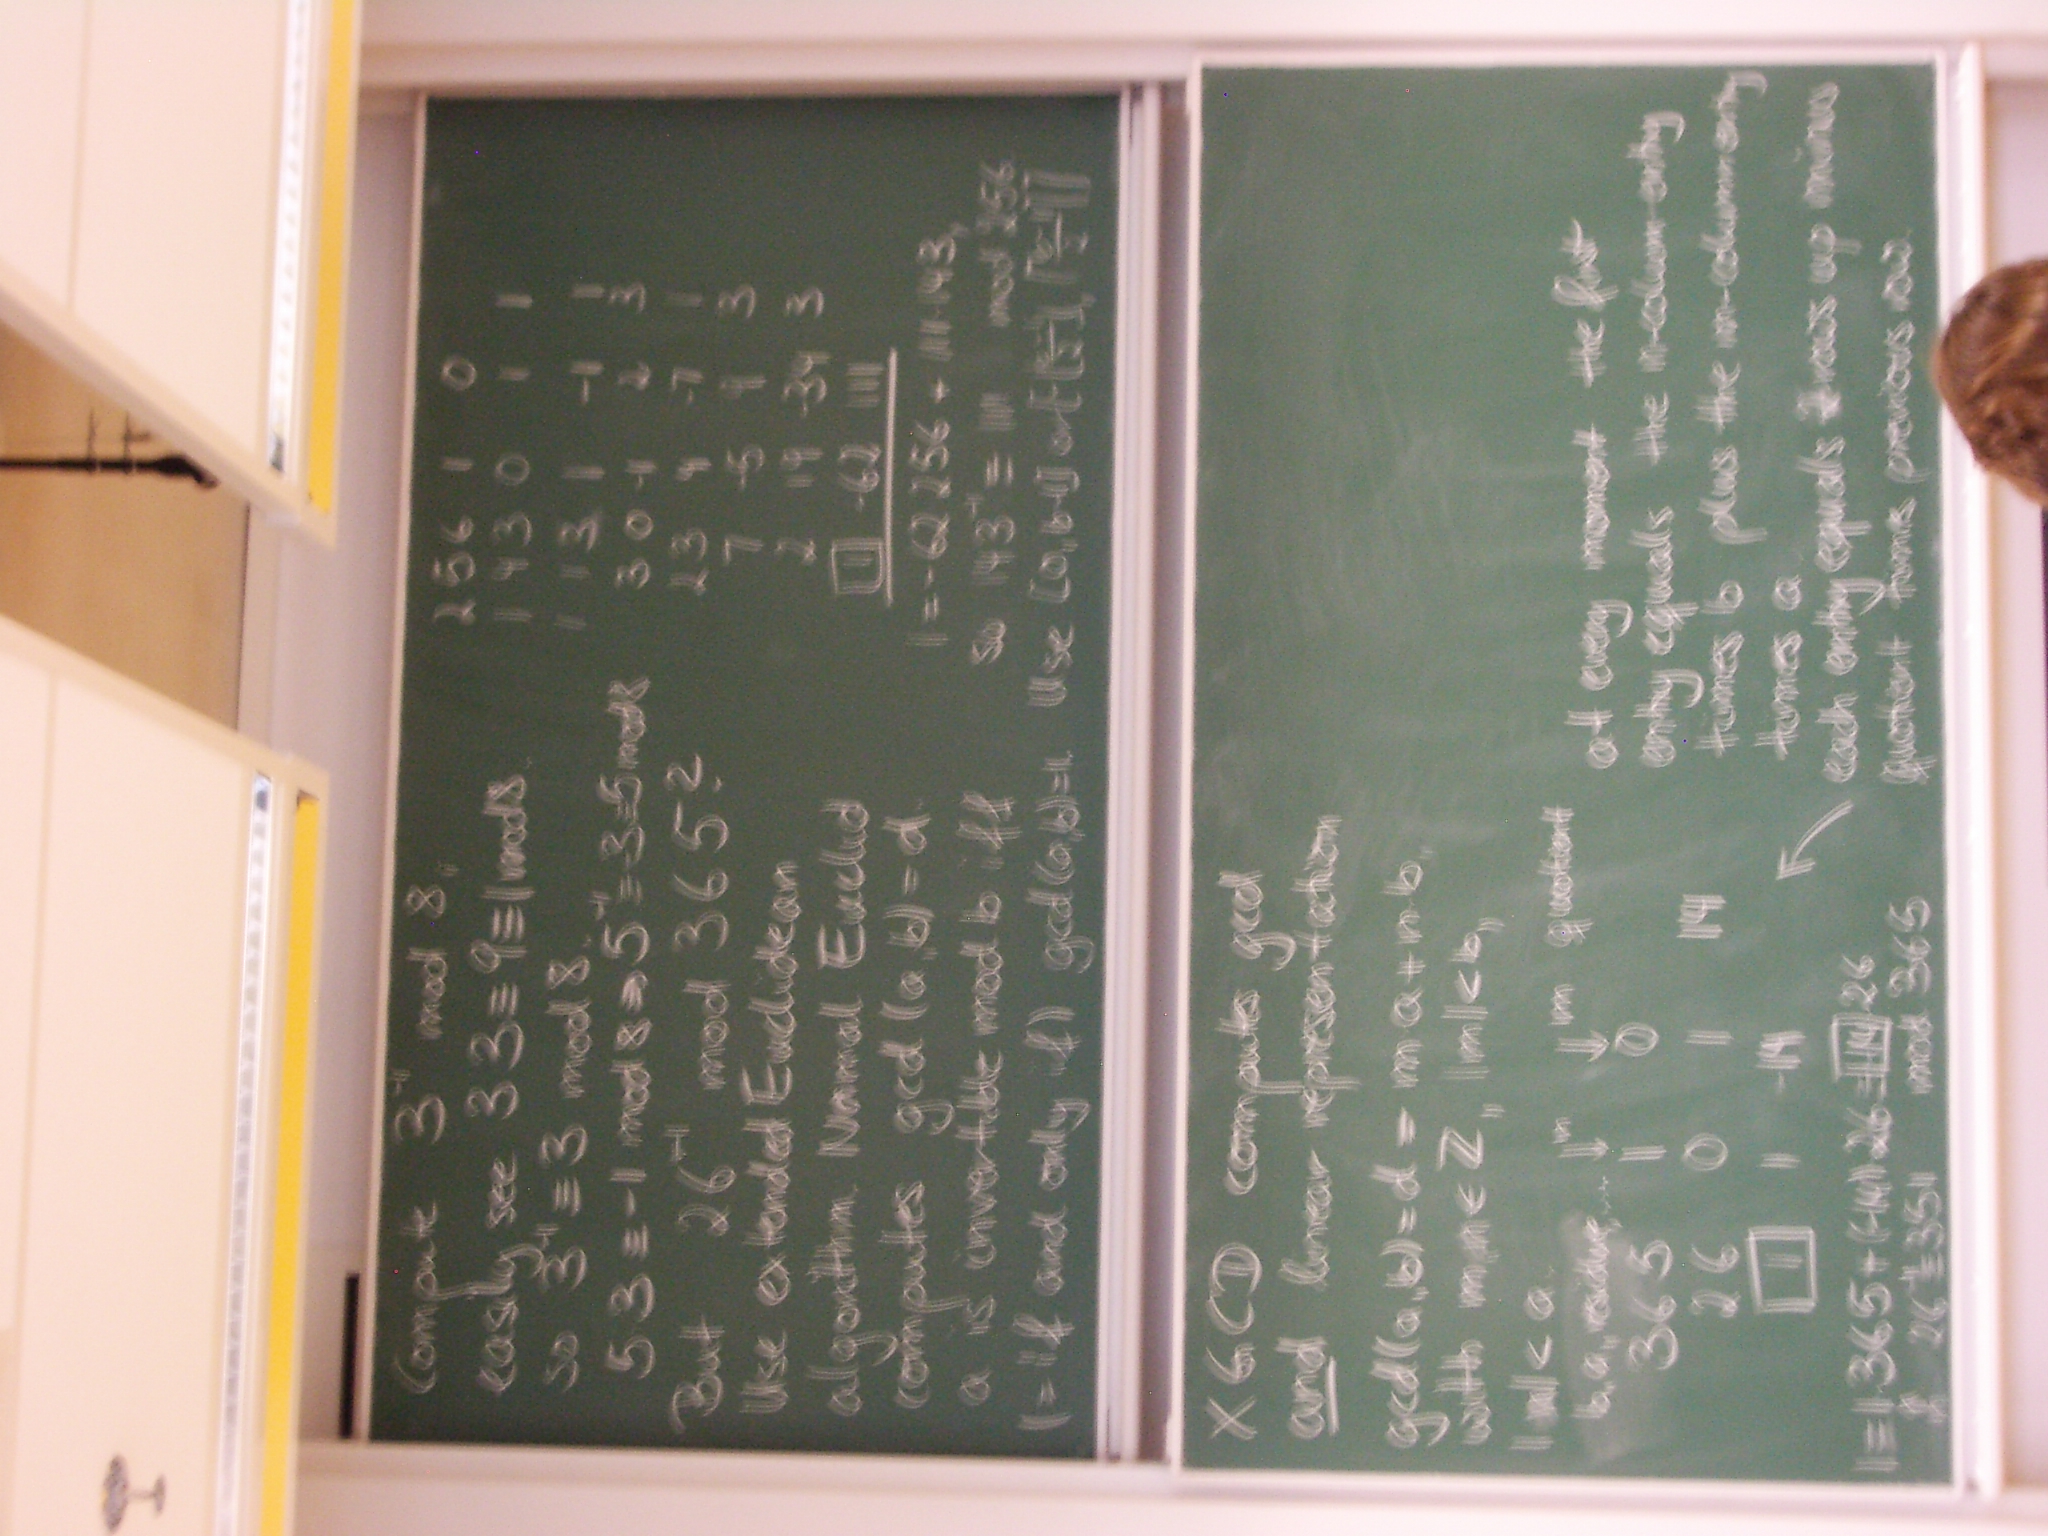 Compute 3⁻¹ mod 8.
easily see 3·3 = 9 ≡ 1 mod 8.
so 3⁻¹ ≡ 3 mod 8.
5·3 ≡ -1 mod 8 ⇒ 5⁻¹ ≡ -3 ≡ 5 mod 8
But 26⁻¹ mod 365?
Use extended Euclidean
algorithm. Normal Euclid
computes gcd(a,b) = d.
a is invertible mod b iff
(= if and only if) gcd(a,b)=1.
256 1 0
143 0 1 1
113 1 -1 1
30 -1 2 3
23 4 -7 1
7 -5 9 3
2 19 -34 3
1 -62 111
1 = -62·256 + 111·143,
so 143⁻¹ ≡ 111 mod 256
Use [0, b-1] or
XGCD computes gcd
and linear representation
gcd(a,b) = d = m a + n b
with m, n ∈ Z, |m| < b,
|n| < a
b, a, residues, n m quotient
365 1 0
26 0 1 14
1 1 -14
1 = 1·365 + (-14)·26 ≡ -14·26
26⁻¹ ≡ 351 mod 365
at every moment the first
entry equals the n-column-entry
times b plus the m-column-entry
times a.
each entry equals 2 rows up minus
quotient times previous row.